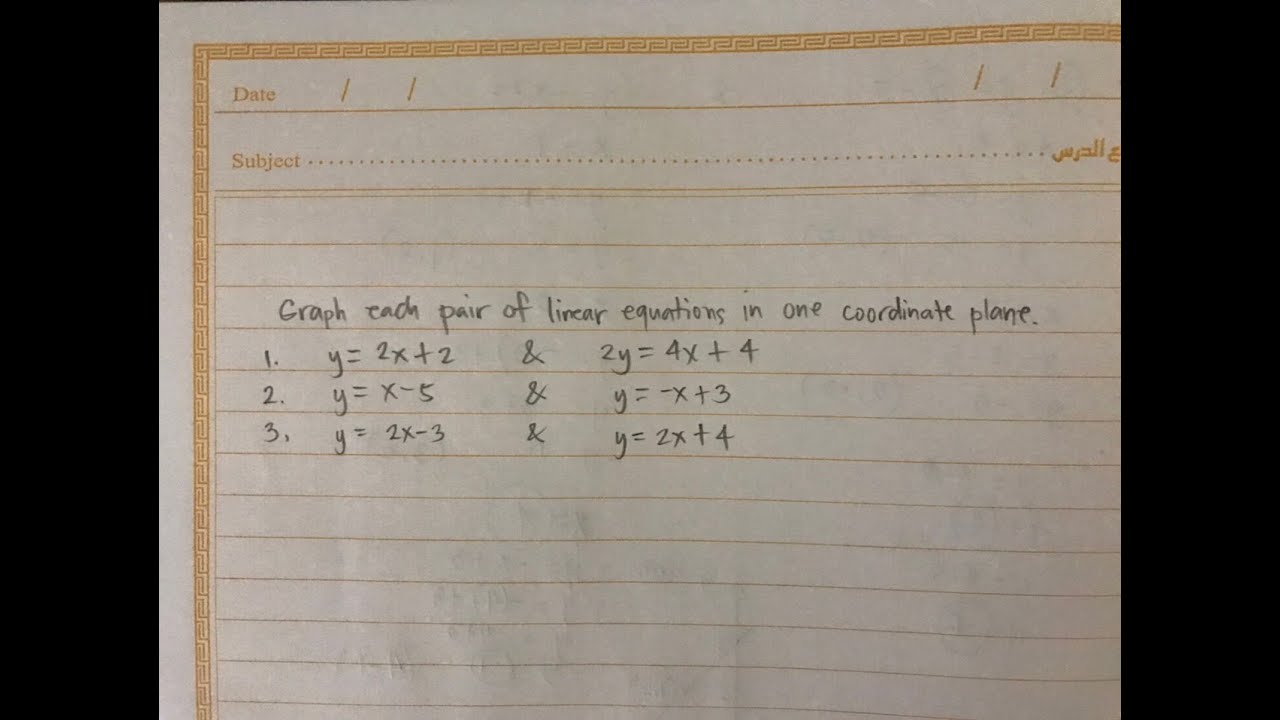 Date / / / /
Subject ع الدرس
Graph each pair of linear equations in one coordinate plane.
1. y = 2x + 2 & 2y = 4x + 4
2. y = x - 5 & y = -x + 3
3. y = 2x - 3 & y = 2x + 4